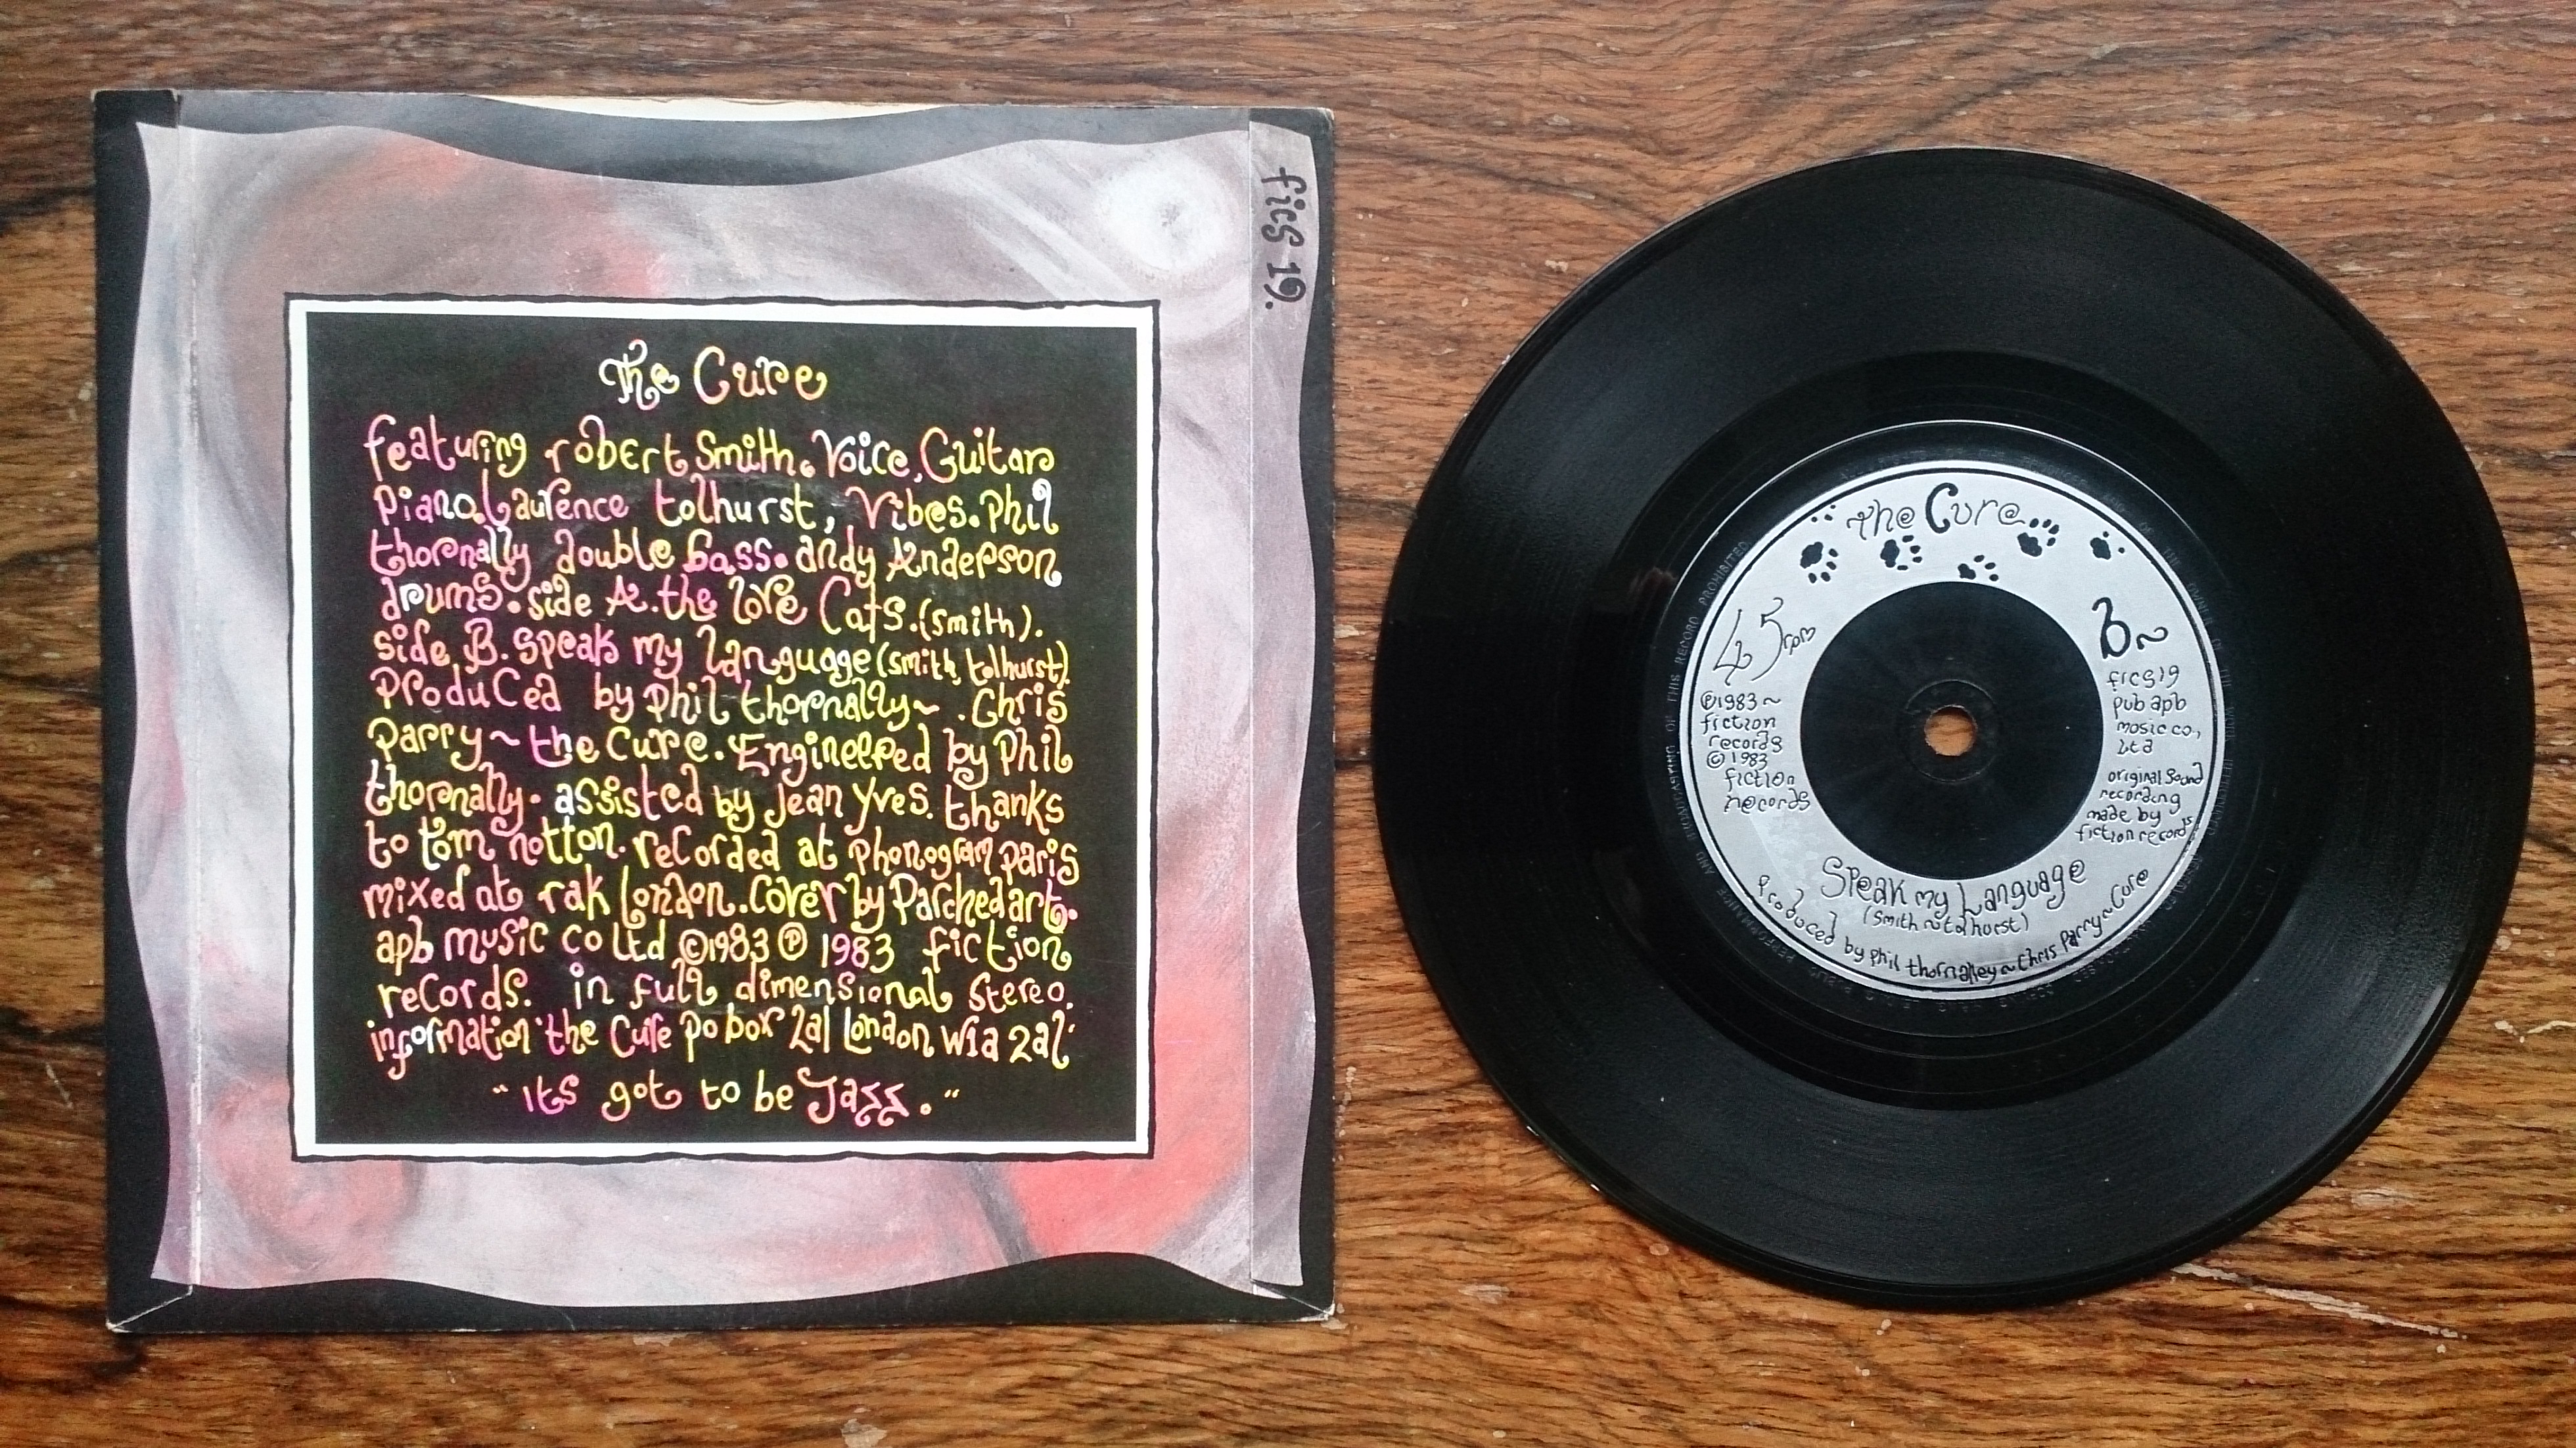 fics 19.
The Cure
featuring robert Smith. Voice, Guitar
piano. Laurence tolhurst, Vibes. Phil
thornally double bass. andy Anderson
drums. side A. the love Cats. (smith).
side B. speak my language (smith, tolhurst).
produced by phil thornally~. Chris
Parry~ the Cure. Engineered by Phil
thornally. assisted by jean yves. thanks
to tom notton. recorded at phonogram paris
mixed at rak london. cover by Parchedart.
apb music co ltd ©1983 ℗ 1983 fiction
records. in full dimensional stereo.
information 'the Cure po box 2al London W1a 2al'
"its got to be Jazz."
The Cure
45 rpm
B~
℗1983~
fiction
records
© 1983
fiction
records
fics19
pub apb
music co,
Ltd
original sound
recording
made by
fiction records
Speak my Language
(Smith~tolhurst)
Produced by phil thornalley~Chris Parry~Cure